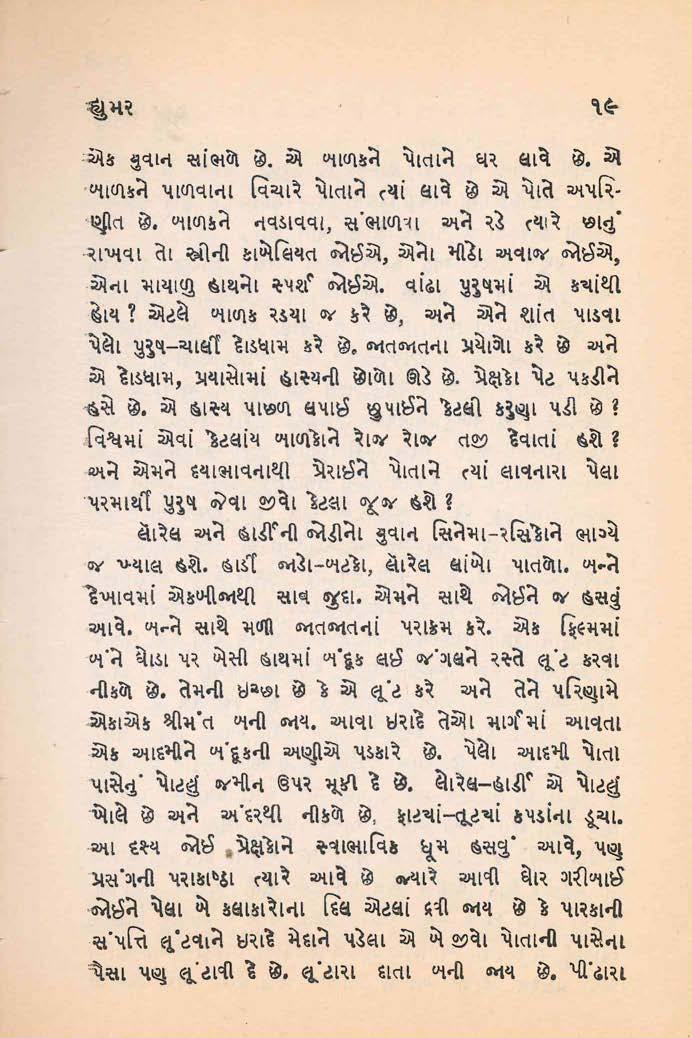 હ્યુમર ૧૯
એક યુવાન સાંભળે છે. એ બાળકને પોતાને ઘર લાવે છે. એ
બાળકને પાળવાના વિચારે પોતાને ત્યાં લાવે છે એ પોતે અપરિ-
ણીત છે. બાળકને નવડાવવા, સંભાળવા અને રડે ત્યારે છાનું
રાખવા તો સ્ત્રીની કાબેલિયત જોઈએ, એનો મીઠો અવાજ જોઈએ,
એના માયાળુ હાથનો સ્પર્શ જોઈએ. વાંઢા પુરુષમાં એ કયાંથી
હોય ? એટલે બાળક રડયા જ કરે છે, અને એને શાંત પાડવા
પેલો પુરુષ–ચાર્લી દોડધામ કરે છે. જાતજાતના પ્રયોગો કરે છે અને
એ દોડધામ, પ્રયાસોમાં હાસ્યની છોળો ઊડે છે. પ્રેક્ષકો પેટ પકડીને
હસે છે. એ હાસ્ય પાછળ લપાઈ છુપાઈને કેટલી કરુણા પડી છે ?
વિશ્વમાં એવાં કેટલાંય બાળકોને રોજ રોજ તજી દેવાતાં હશે ?
અને એમને દયાભાવનાથી પ્રેરાઈને પોતાને ત્યાં લાવનારા પેલા
પરમાર્થી પુરુષ જેવા જીવો કેટલા જૂજ હશે ?
લૉરેલ અને હાર્ડીની જોડીનો યુવાન સિનેમા–રસિકોને ભાગ્યે
જ ખ્યાલ હશે. હાર્ડી જાડો–બટકો, લૉરેલ લાંબો પાતળો. બન્ને
દેખાવમાં એકબીજાથી સાવ જુદા. એમને સાથે જોઈને જ હસવું
આવે. બન્ને સાથે મળી જાતજાતનાં પરાક્રમ કરે. એક ફિલ્મમાં
બંને ઘોડા પર બેસી હાથમાં બંદૂક લઈ જંગલને રસ્તે લૂંટ કરવા
નીકળે છે. તેમની ઇચ્છા છે કે એ લૂંટ કરે અને તેને પરિણામે
એકાએક શ્રીમંત બની જાય. આવા ઇરાદે તેઓ માર્ગમાં આવતા
એક આદમીને બંદૂકની અણીએ પડકારે છે. પેલો આદમી પોતા
પાસેનું પોટલું જમીન ઉપર મૂકી દે છે. લૉરેલ–હાર્ડી એ પોટલું
ખોલે છે અને અંદરથી નીકળે છે, ફાટયાં–તૂટયાં કપડાંના ડૂચા.
આ દૃસ્ય જોઈ પ્રેક્ષકોને સ્વાભાવિક ધૂમ હસવું આવે, પણ
પ્રસંગની પરાકાષ્ઠા ત્યારે આવે છે જ્યારે આવી ઘોર ગરીબાઈ
જોઈને પેલા બે કલાકારોના દિલ એટલાં દ્રવી જાય છે કે પારકાની
સંપત્તિ લૂંટવાને ઇરાદે મેદાને પડેલા એ બે જીવો પોતાની પાસેના
પૈસા પણ લૂંટાવી દે છે. લૂંટારા દાતા બની જાય છે. પીંઢારા